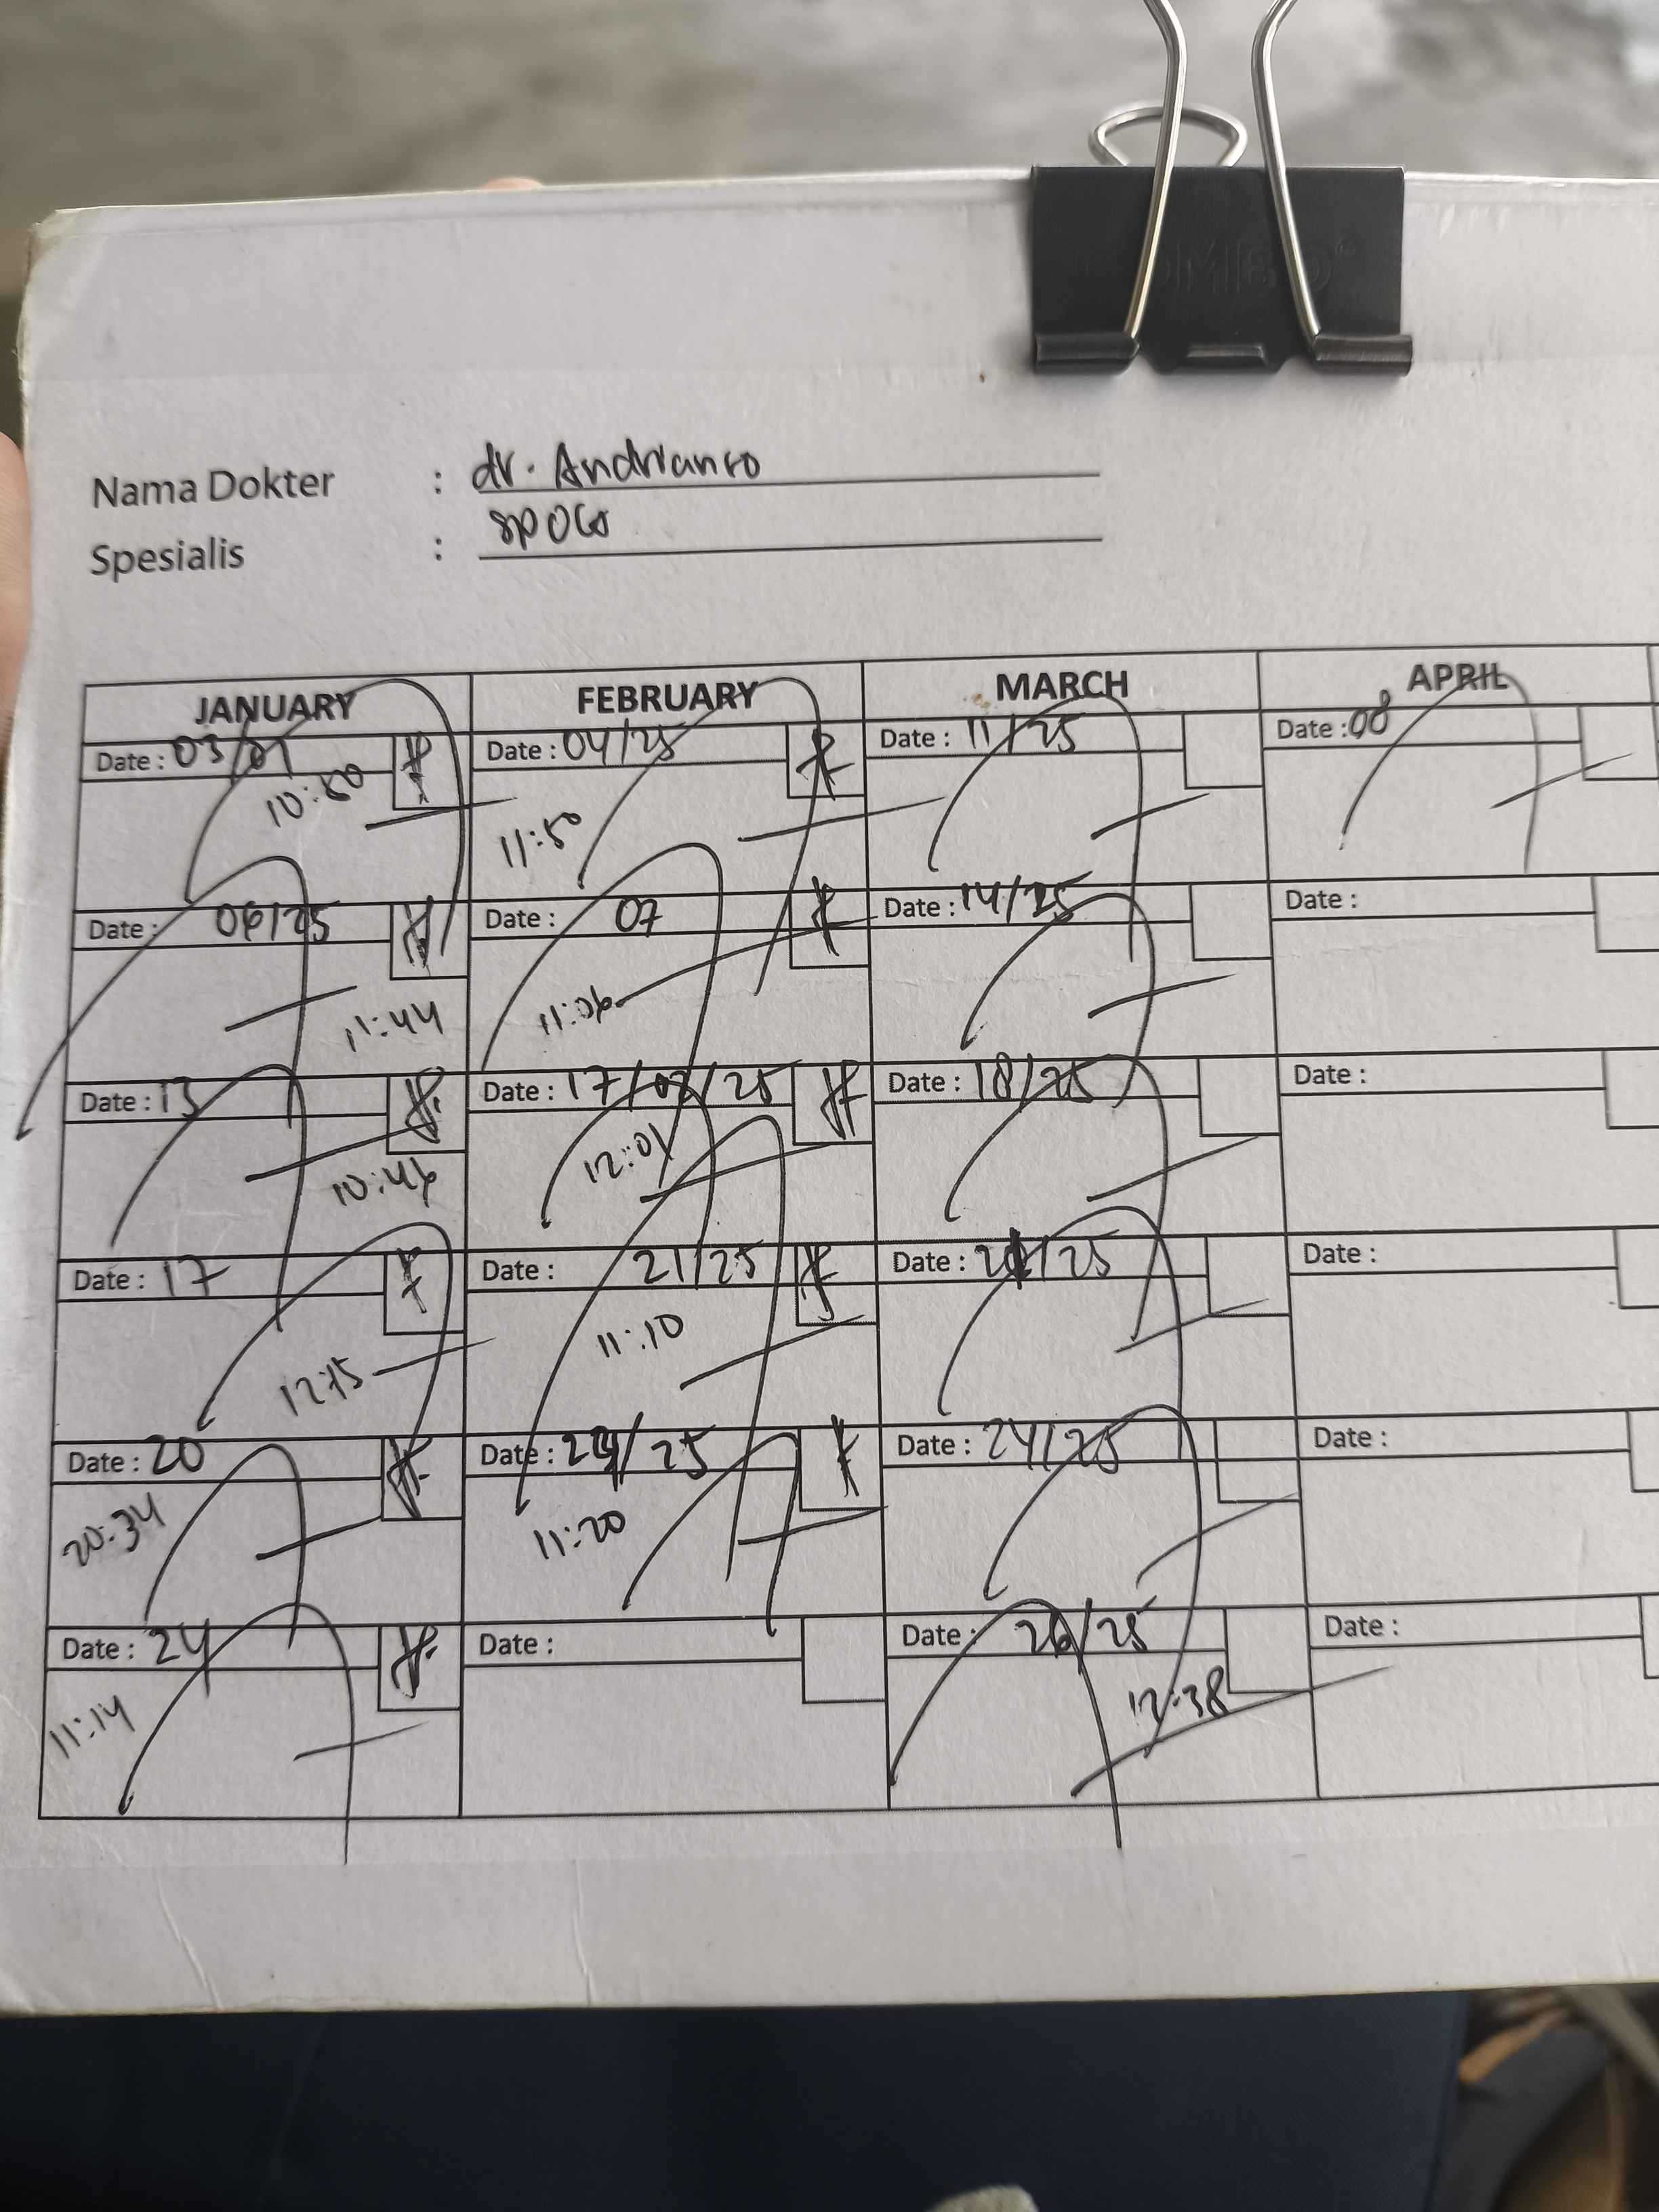 Nama Dokter : dr. Andrianto
Spesialis : SPOG
JANUARY FEBRUARY MARCH APRIL
Date : 03/01 Date : 04/25 Date : 11/25 Date : 08
10:50 11:50
Date : 06/25 Date : 07 Date : 14/25 Date :
11:44 11:06
Date : 13 Date : 17/02/25 Date : 18/25 Date :
10:46 12:01
Date : 17 Date : 21/25 Date : /25 Date :
12:15 11:10
Date : 20 Date : /25 Date : 24/25 Date :
20:34 11:20
Date : 24 Date : Date : 26/25 Date :
11:14 12:38